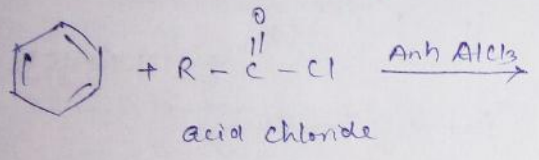 O
+ R - C - Cl Anh AlCl3
acid chloride